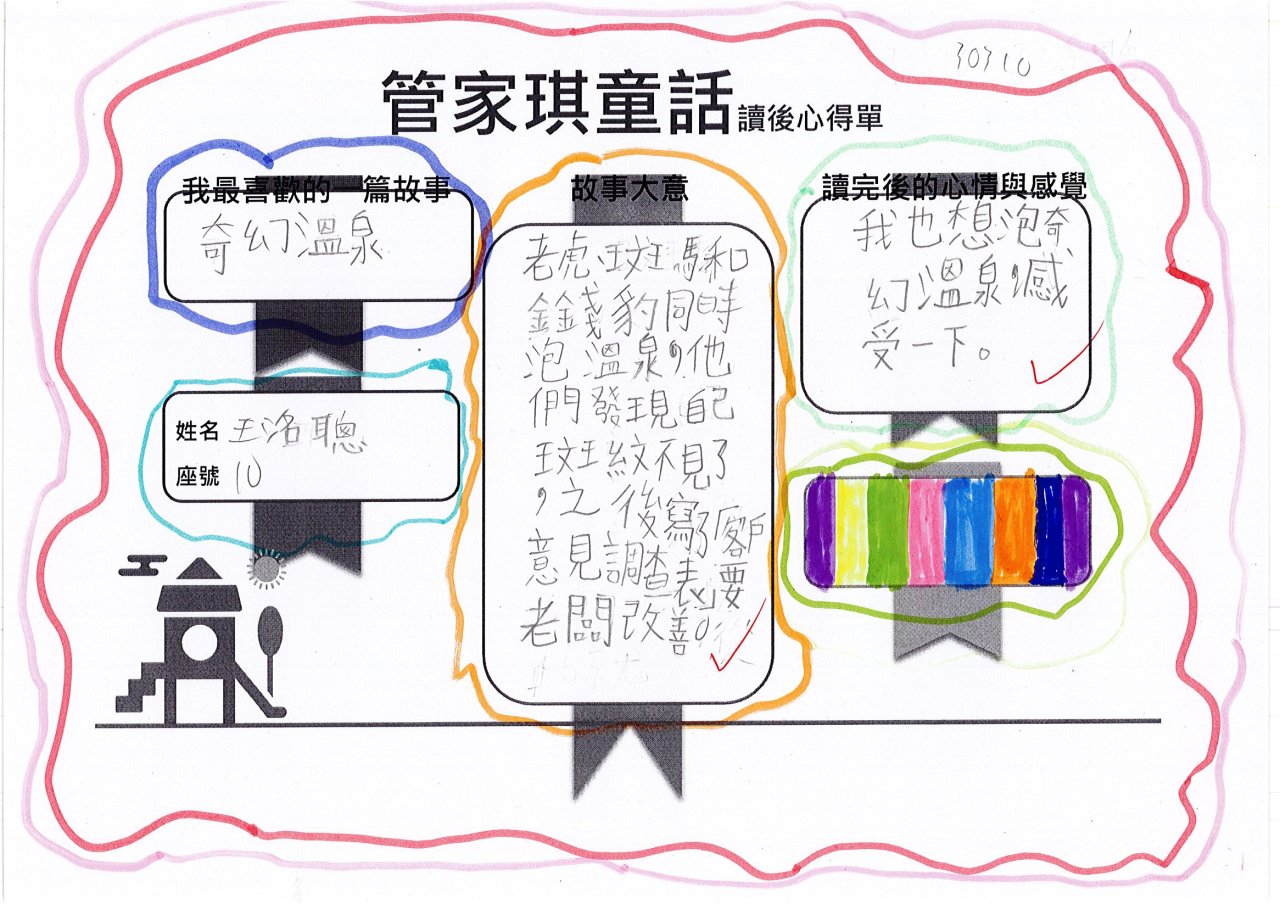 30310
管家琪童話讀後心得單
我最喜歡的一篇故事
奇幻溫泉
姓名 王洛聰
座號 10
故事大意
老虎、斑馬和
金錢豹同時
泡溫泉,他
們發現自己
斑紋不見了
,之後寫客戶
意見調查表,要
老闆改善。
讀完後的心情與感覺
我也想泡奇
幻溫泉,感
受一下。